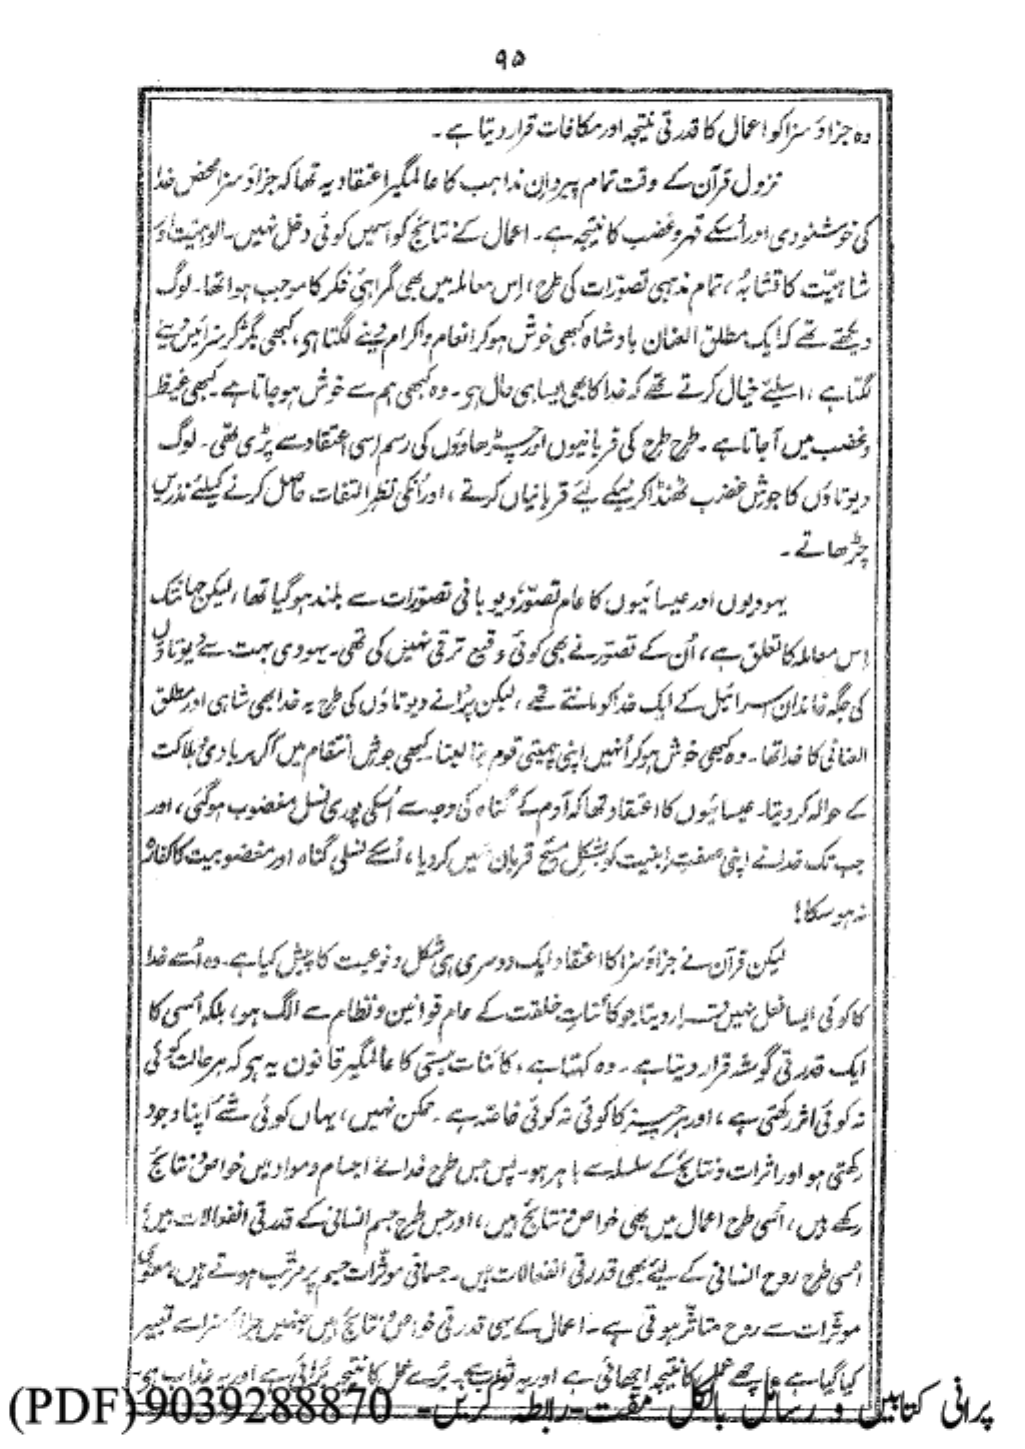 ۹۵
وہ جزا و سزا کو اعمال کا قدرتی نتیجہ اور مکافات قرار دیتا ہے۔
نزول قرآن کے وقت تمام پیروانِ مذاہب کا عالمگیر اعتقاد یہ تھا کہ جزا و سزا محض خدا
کی خوشنودی اور اُسکے قہر و غضب کا نتیجہ ہے۔ اعمال کے نتائج کو اسمیں کوئی دخل نہیں۔ الوہیت اور
شاہیّت کا تشابُہ، تمام مذہبی تصوّرات کی طرح، اِس معاملہ میں بھی گمراہیِ فکر کا موجب ہوا تھا۔ لوگ
دیکھتے تھے کہ ایک مطلق العنان بادشاہ کبھی خوش ہو کر انعام و اکرام دینے لگتا ہی، کبھی بگڑ کر سزائیں دینے
لگتا ہے، اسلیئے خیال کرتے تھے کہ خدا کا بھی ایسا ہی حال ہی۔ وہ کبھی ہم سے خوش ہو جاتا ہے۔ کبھی غیظ
و غضب میں آجاتا ہے۔ طرح طرح کی قربانیوں اور چڑھاووں کی رسم اِسی اعتقاد سے پڑی تھی۔ لوگ
دیوتاؤں کا جوشِ غضب ٹھنڈا کرنیکے لیئے قربانیاں کرتے، اور اُنکی نظرِ التفات حاصل کرنے کیلئے نذریں
چڑھاتے۔
یہودیوں اور عیسائیوں کا عام تصوّر دیوبانی تصوّرات سے بلند ہو گیا تھا، لیکن جہانتک
اِس معاملہ کا تعلق ہے، اُن کے تصوّر نے بھی کوئی وقیع ترقی نہیں کی تھی۔ یہودی بہت سے دیوتاؤں
کی جگہ خاندان اسرائیل کے ایک خدا کو مانتے تھے، لیکن پُرانے دیوتاؤں کی طرح یہ خدا بھی شاہی اور مطلق
العنانی کا خدا تھا۔ وہ کبھی خوش ہو کر اُنہیں اپنی چہیتی قوم بنا لیتا۔ کبھی جوشِ انتقام میں آکر بربادی و ہلاکت
کے حوالہ کر دیتا۔ عیسائیوں کا اعتقاد تھا کہ آدم کے گناہ کی وجہ سے اُسکی پوری نسل مغضوب ہو گئی، اور
جب تک خدا نے اپنی صفتِ ابنیت کو بشکل مسیح قربان نہیں کر دیا، اُسکے نسلی گناہ اور مغضوبیت کا کفارہ
نہ ہو سکا!
لیکن قرآن نے جزا و سزا کا اعتقاد ایک دوسری ہی شکل و نوعیت کا پیش کیا ہے۔ وہ اُسے خدا
کا کوئی ایسا فعل نہیں قرار دیتا جو کائناتِ خلقت کے عام قوانین و نظام سے الگ ہو، بلکہ اُسی کا
ایک قدرتی گوشہ قرار دیتا ہے۔ وہ کہتا ہے، کائنات ہستی کا عالمگیر قانون یہ ہی کہ ہر حالت کوئی
نہ کوئی اثر رکھتی ہے، اور ہر چیز کا کوئی نہ کوئی خاصّہ ہے۔ ممکن نہیں، یہاں کوئی شے اپنا وجود
رکھتی ہو اور اثرات و نتائج کے سلسلہ سے باہر ہو۔ پس جس طرح خدا نے اجسام و مواد میں خواص و نتائج
رکھے ہیں، اُسی طرح اعمال میں بھی خواص و نتائج ہیں، اور جس طرح جسم انسانی کے قدرتی انفعالات ہیں،
اُسی طرح روح انسانی کے لیئے بھی قدرتی انفعالات ہیں۔ جسمانی موثّرات جسم پر مرتّب ہوتے ہیں، معنوی
موثّرات سے روح متاثّر ہوتی ہے۔ اعمال کے یہی قدرتی خواص و نتائج ہیں جنہیں جزا و سزا سے تعبیر
کیا گیا ہے۔ اچھے عمل کا نتیجہ اچھائی ہے اور یہ ثواب ہے۔ بُرے عمل کا نتیجہ بُرائی ہے اور یہ عذاب ہی۔
پرانی کتابیں و رسائل بالکل مفت۔ رابطہ کریں۔ 9039288870 (PDF)